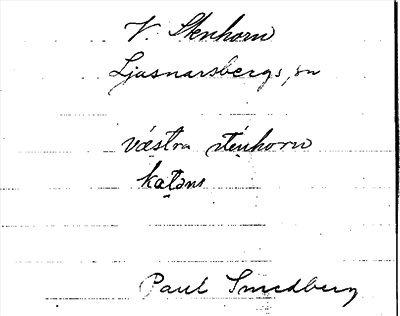 V. Stenhorn
Ljusnarsbergs, sn
västra sténhorn
katəns
Paul Smedberg